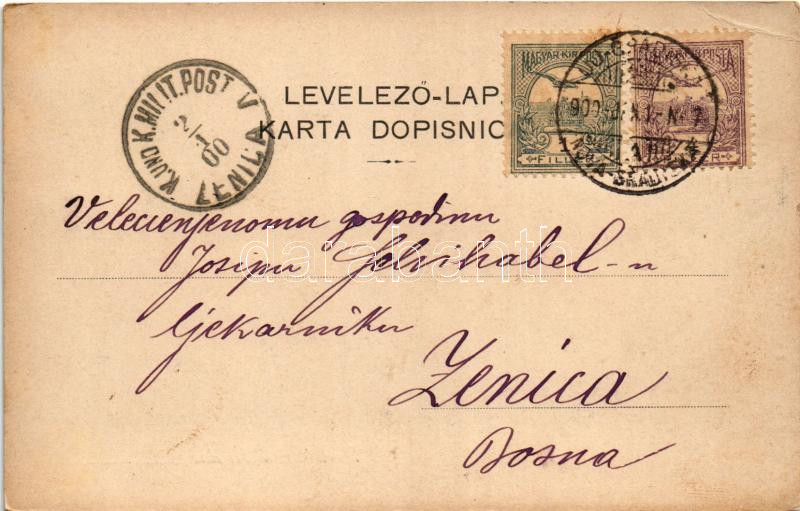 K. UND K. MILIT. POST V
2/1
00
ZENICA
LEVELEZŐ-LAP
KARTA DOPISNIC
MAGYAR KIR. POSTA
FILLÉR
NOVA-GRADIŠKA
Velecienjenomu gospodinu
Josipu Selvihabel-u
ljekarniku
Zenica
Bosna
darabanth